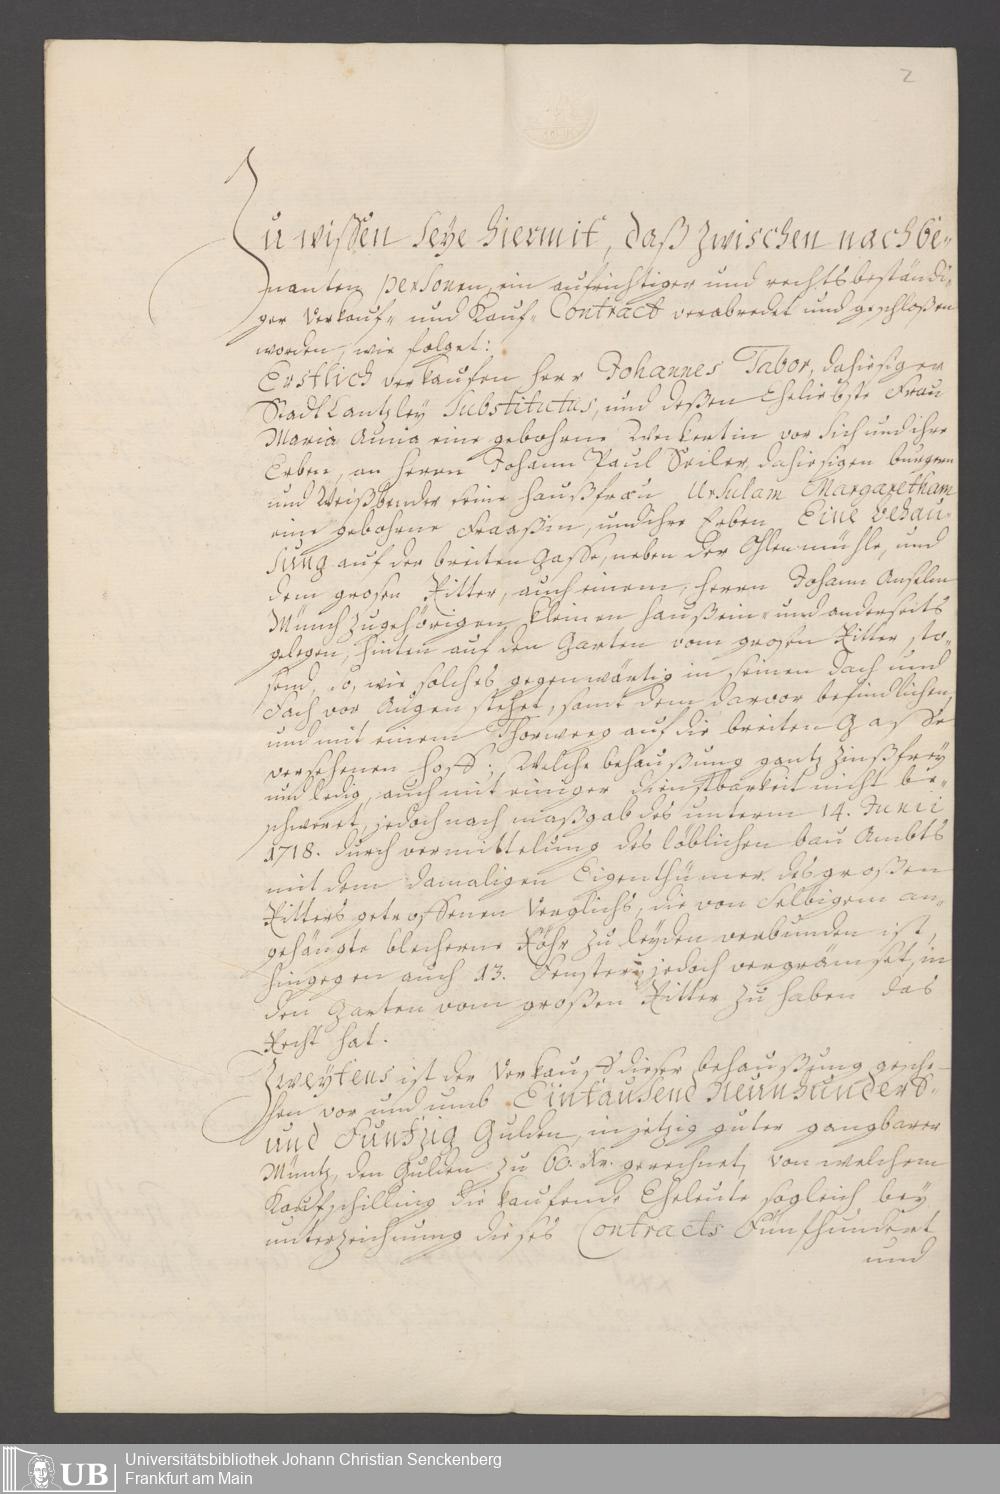 2
Zu wißen seye hiermit, daß zwischen nachbe-
nanten personen, ein aufrichtiger und rechtsbeständi-
ger Verkauf- und Kauf- Contract verabredet und geschloßen
worden, wie folget:
Erstlich verkaufen Herr Johannes Tabor, dahiesiger
StadtCantzley Substitutus, und deßen Eheliebste Frau
Maria Anna eine gebohrne Weickertin vor sich und ihre
Erben, an Herrn Johann Paul Seiler, dahiesigen burgern
und Weißbender seine Haußfrau Ursulam Margaretham
eine gebohrne Fraaßin, und ihre Erben Eine behau-
sung auf der breiten Gasse, neben der Ohlenmühle, und
dem grosen Ritter, auch einem, Herrn Johann Anselm
Münch zugehörigen kleinen Hauß ein- und anderseits
gelegen, hinten auf den Garten vom grosen Ritter sto-
send, so, wie solches gegenwärtig in seinen Dach und
Fach vor Augen stehet, samt dem darvor befindlichen,
und mit einem Thorweeg auf die breiten Gasse
versehenen Hoff: Welche behaußung gantz Zinßfrey
und ledig, auch mit einiger Dienstbarkeit nicht be-
schweret, jedoch nach maßgab des unterm 14. Junii
1718. durch vermittelung des löblichen bau Ambts
mit dem damaligen Eigenthümer des großen
Ritters getroffenen Verglichs, die von selbigem an-
gehängte blecherne Röhr zu leyden verbunden ist,
hingegen auch 13. Fenster, jedoch vergrämset, in
den Garten vom großen Ritter zu haben das
Recht hat.
Zweytens ist der Verkauff dieser behaußung gesche-
hen vor und umb Eintausend Neunhundert-
und Funfzig Gulden, in jetzig guter gangbarer
Müntz, den Gulden zu 60. Xr. gerechnet, von welchem
Kaufschilling die kaufende Eheleute sogleich bey
unterzeichnung dieses Contracts Fünfhundert
und
UB
Universitätsbibliothek Johann Christian Senckenberg
Frankfurt am Main